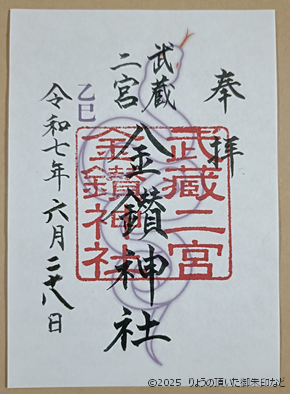 奉拝
武蔵
二宮
金鑚神社
武蔵二宮
金鑚神社
乙巳
令和七年六月二十八日
©2025 りょうの頂いた御朱印など